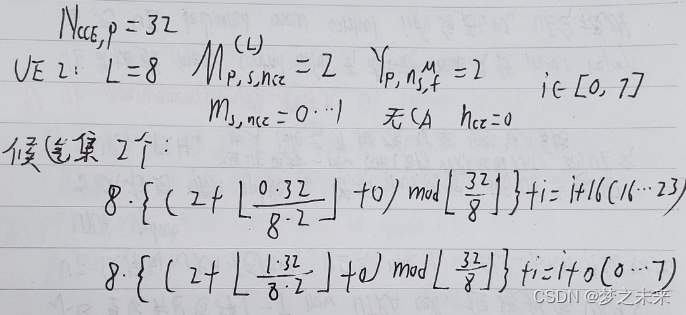 N_CCE,p = 32
UE 2: L=8 M_p,s,ncz^(L) = 2 Y_p,n_s,f^μ = 2 i∈[0,7]
m_s,ncz = 0…1 无CA ncz=0
候选集 2个:
8·{(2+⌊0·32/8·2⌋+0) mod⌊32/8⌋}+i=i+16(16…23)
8·{(2+⌊1·32/8·2⌋+0) mod⌊32/8⌋}+i=i+0(0…7)
CSDN @梦之未来